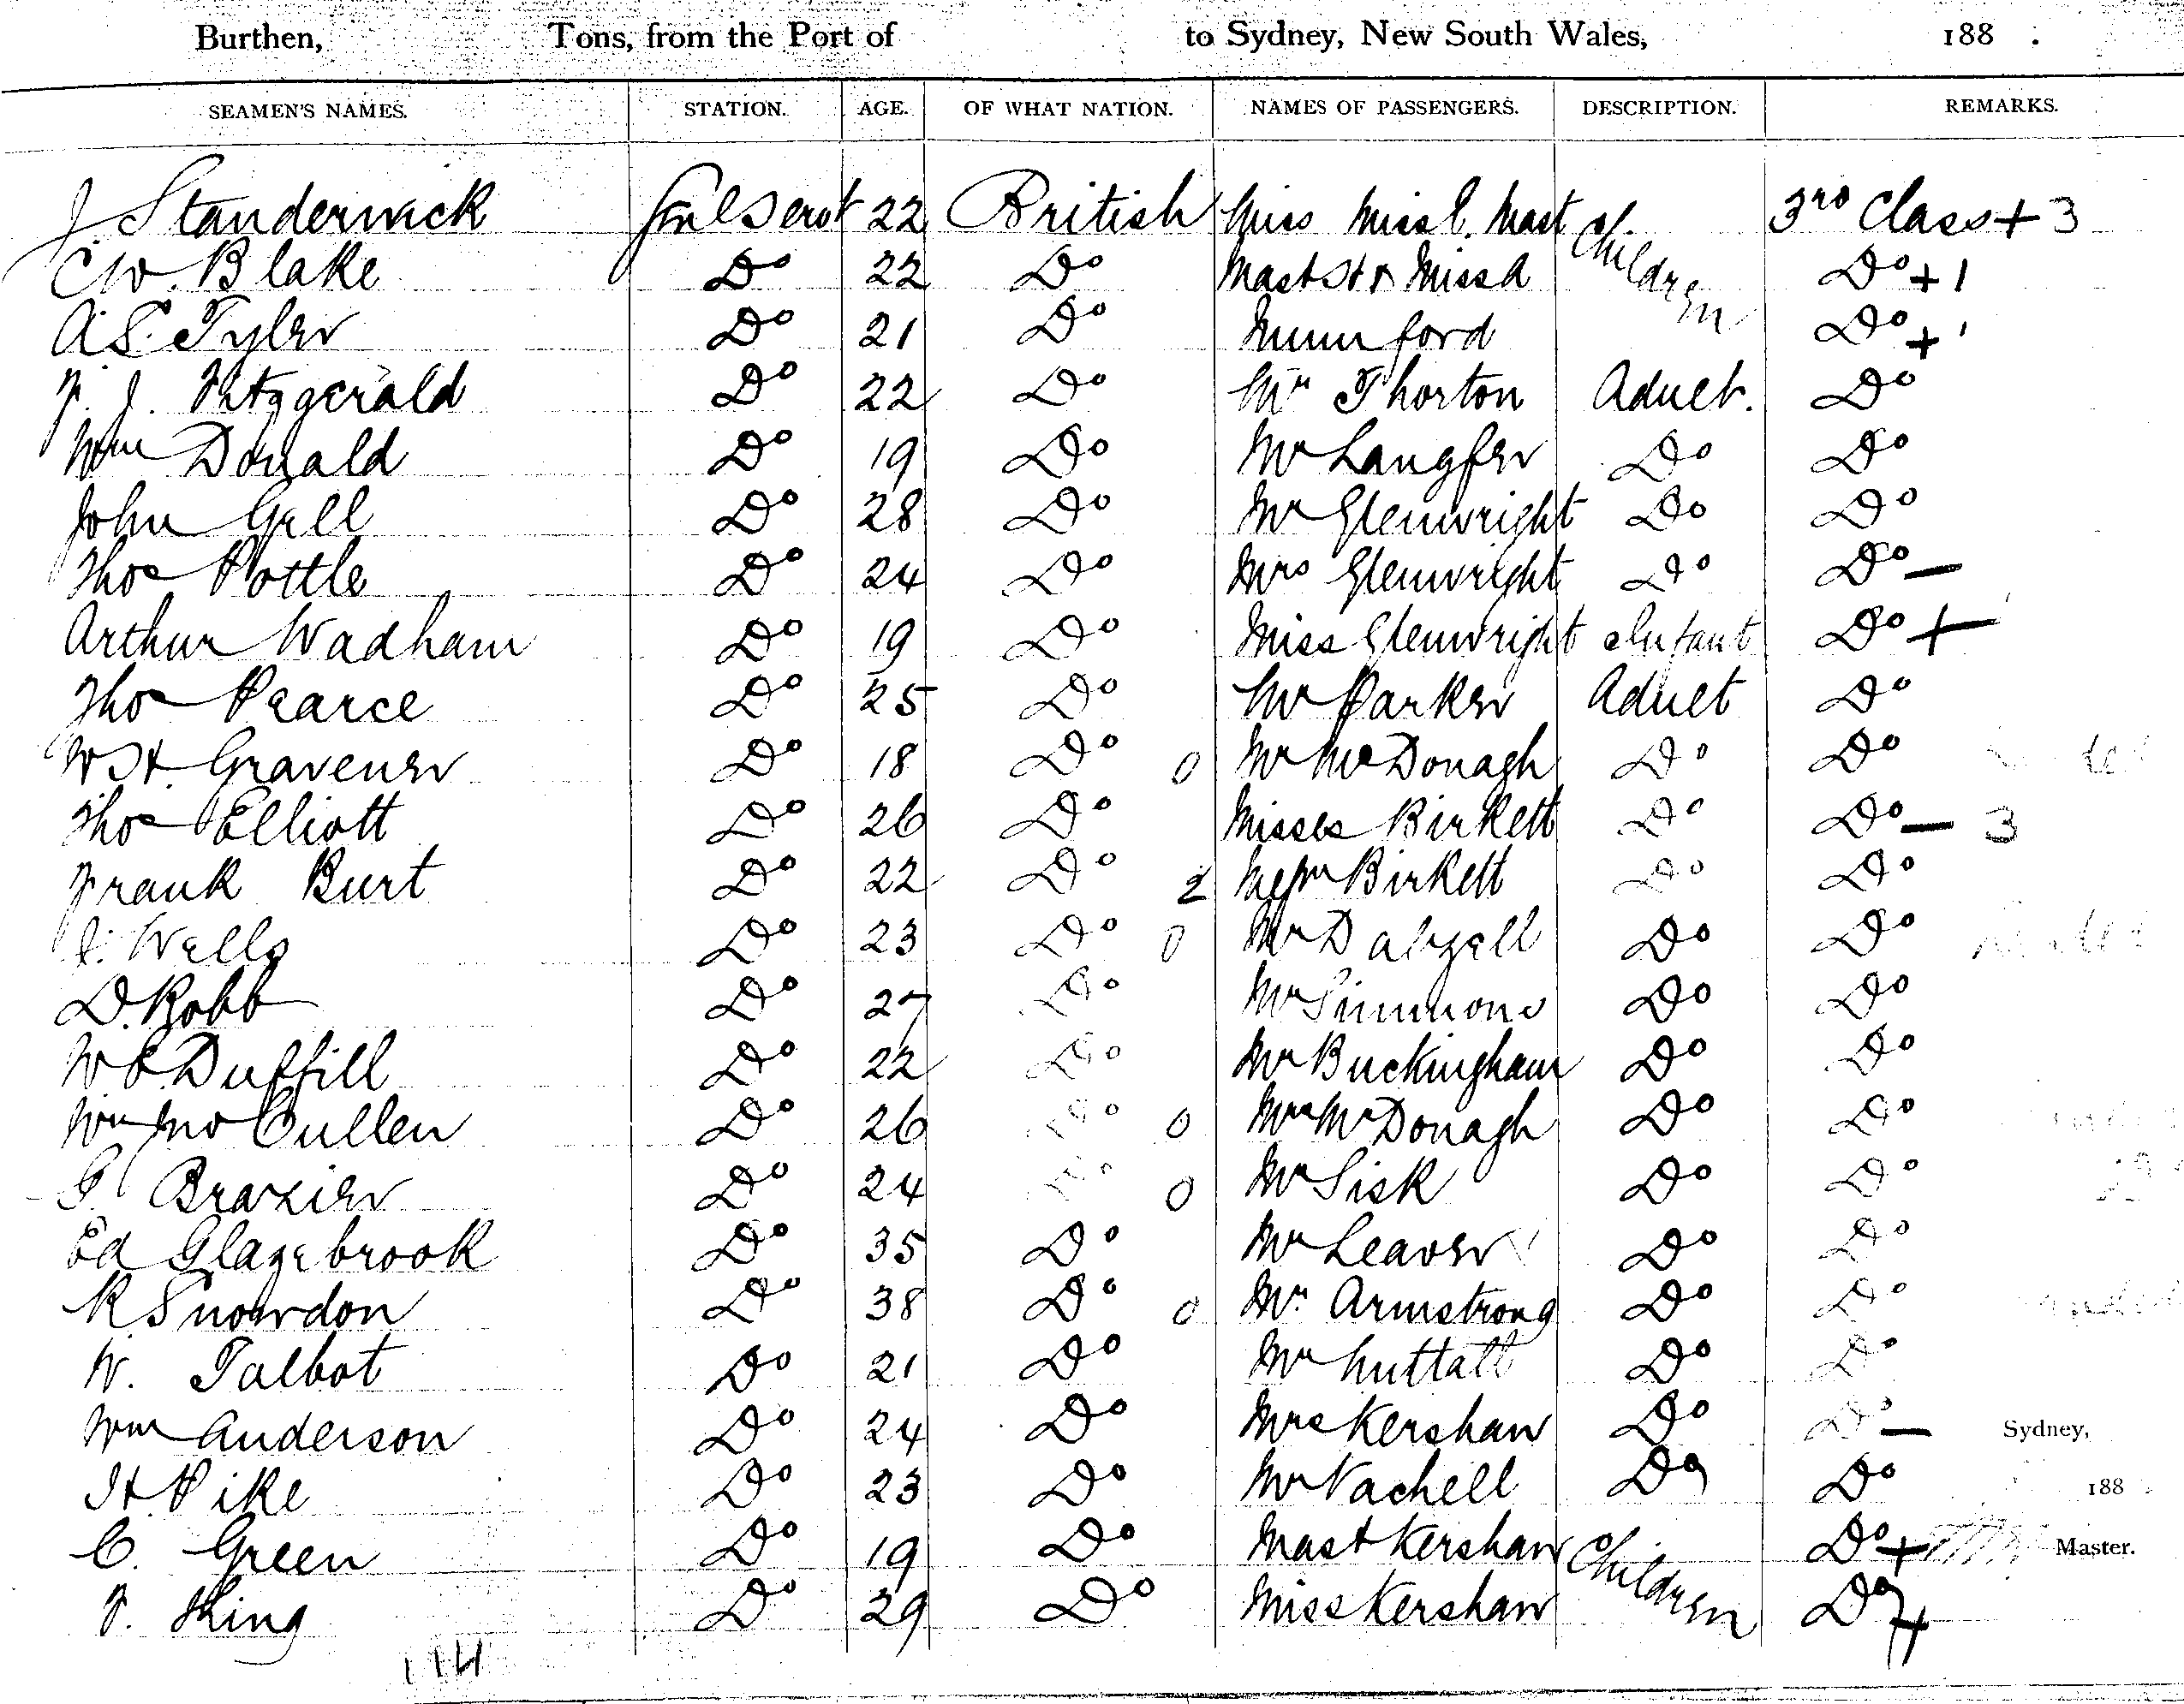 Burthen, Tons, from the Port of to Sydney, New South Wales, 188 .
SEAMEN'S NAMES. STATION. AGE. OF WHAT NATION. NAMES OF PASSENGERS. DESCRIPTION. REMARKS.
J. Standerwick 22 British Miss Miss E. Mast Children 3rd Class + 3
C W. Blake Do 22 Do Mast H & Miss A Do + 1
A.S. Tyler Do 21 Do Mumford Do + 1
F. J. Fitzgerald Do 22 Do Mr Thorton Adult. Do
Wm Donald Do 19 Do Mr Langfer Do Do
John Gell Do 28 Do Mr Glenwright Do Do
Thos Pottle Do 24 Do Mrs Glenwright Do Do —
Arthur Wadham Do 19 Do Miss Glenwright Infant Do +
Thos Pearce Do 25 Do Mr Parker Adult Do
W H. Gravener Do 18 Do 0 Mr McDonagh Do Do
Thos Elliott Do 26 Do Misses Birkett Do Do — 3
Frank Burt Do 22 Do 2 Birkett Do Do
J. Wells Do 23 Do 0 Mr Dalzell Do Do
D. Robb Do 27 Do Mr Simmons Do Do
W E. Duffill Do 22 Do Mr Buckingham Do Do
Wm Jno Cullen Do 26 Do 0 Mrs McDonagh Do Do
G. Brazier Do 24 Do 0 Mr Sisk Do Do
Ed Glazebrook Do 35 Do Mr Leaver Do Do
R Snowdon Do 38 Do 0 Mr. Armstrong Do Do
W. Talbot Do 21 Do Mr Nuttall Do Do
Wm Anderson Do 24 Do Mrs Kershaw Do Do — Sydney,
H. Pike Do 23 Do Mr Vachell Do Do 188
C. Green Do 19 Do Mast Kershaw Children Do + Master.
F. King Do 29 Do Miss Kershaw Do +
114